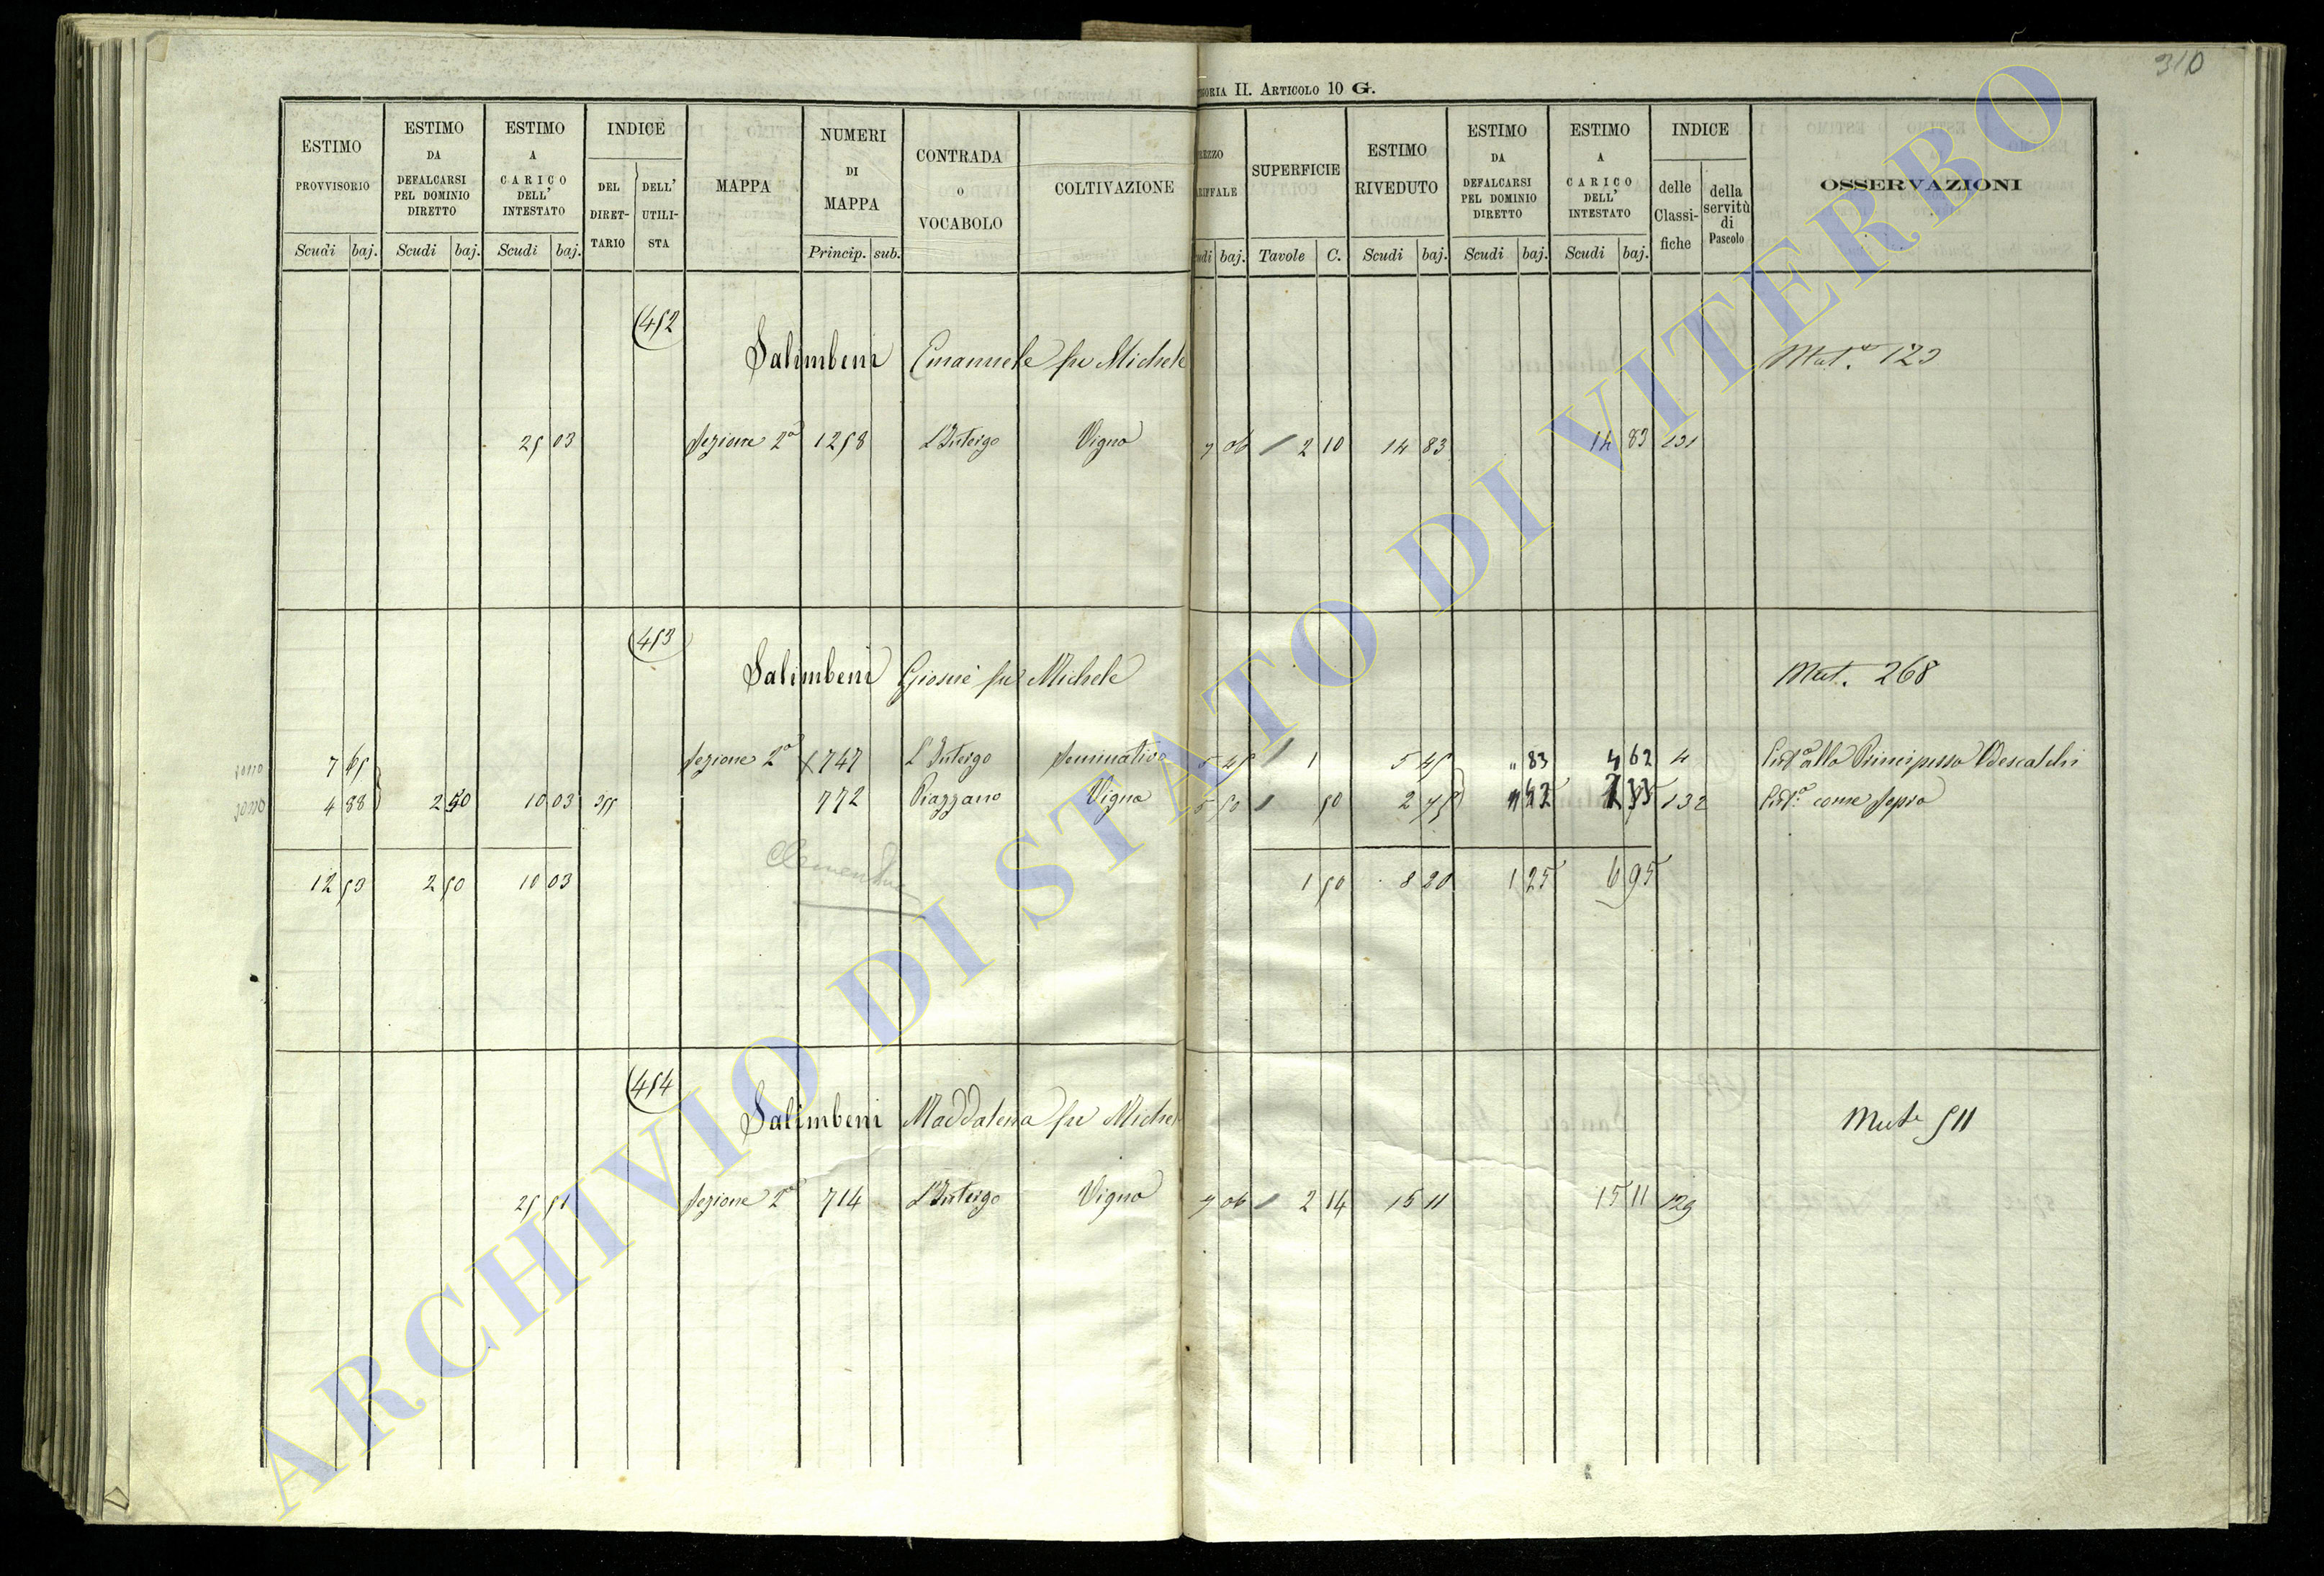 310
ORIA II. ARTICOLO 10 G.
ESTIMO PROVVISORIO Scudi baj.
ESTIMO DA DEFALCARSI PEL DOMINIO DIRETTO Scudi baj.
ESTIMO A CARICO DELL' INTESTATO Scudi baj.
INDICE DEL DIRET-TARIO DELL' UTILI-STA
MAPPA
NUMERI DI MAPPA Princip. sub.
CONTRADA O VOCABOLO
COLTIVAZIONE
REZZO RIFFALE udi baj.
SUPERFICIE Tavole C.
ESTIMO RIVEDUTO Scudi baj.
ESTIMO DA DEFALCARSI PEL DOMINIO DIRETTO Scudi baj.
ESTIMO A CARICO DELL' INTESTATO Scudi baj.
INDICE delle Classi-fiche della servitù di Pascolo
OSSERVAZIONI
452
Salimbeni Emanuele fu Michele Mut.e 123
25 03 Sezione 2a 1258 L'Intergo Vigna 7 06 2 10 14 83 14 83 131
453
Salimbeni Giosuè fu Michele Mut. 268
7 65 Sezione 2a 747 L'Intergo Seminativo 5 45 1 5 45 " 83 4 62 4 alla Principessa Odescalchi
4 88 2 50 10 03 355 772 Piazzano Vigna 5 50 50 2 75 132 come sopra
12 53 2 50 10 03 1 50 8 20 1 25 6 95
454
Salimbeni Maddalena fu Michel Mut.e 511
25 51 Sezione 2a 714 L'Intergo Vigna 7 06 2 14 15 11 15 11 129
ARCHIVIO DI STATO DI VITERBO